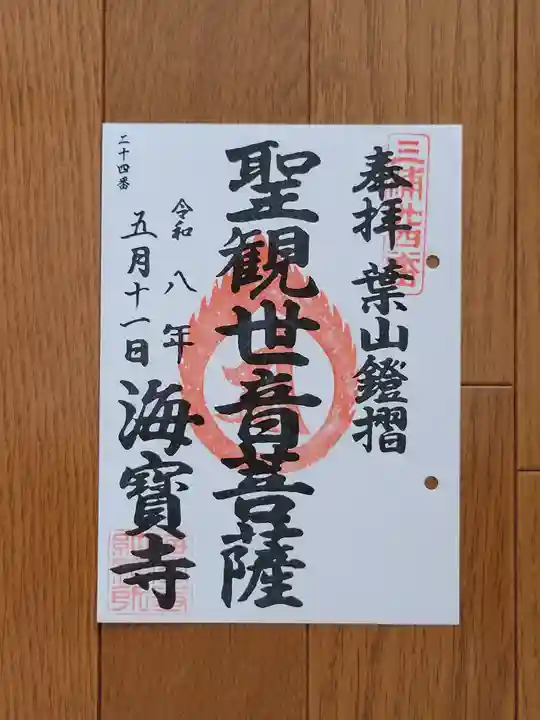 奉拝 葉山鐙摺
聖観世音菩薩
令和八年
五月十一日
海寶寺
二十四番